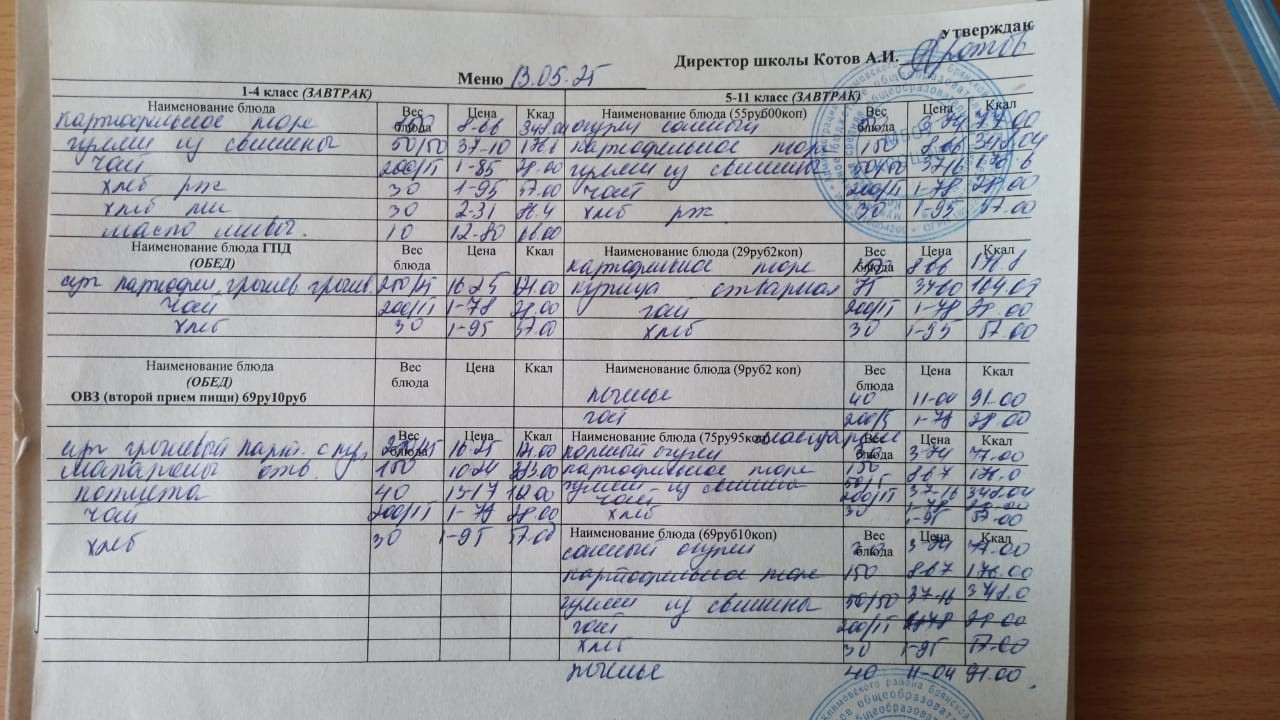 Утверждаю
Директор школы Котов А.И.
Меню 13.05.25
1-4 класс (ЗАВТРАК)
Наименование блюда Вес блюда Цена Ккал
картофельное пюре 8-66
гуляш из свинины 50/50 37-10
чай 200/15 1-85 28.00
хлеб рж 30 1-95 57.00
хлеб пш 30 2-31
масло слив. 10 12-80 66.00
Наименование блюда ГПД (ОБЕД) Вес блюда Цена Ккал
суп картофел. 16-25
чай 200/15 1-78 28.00
хлеб 30 1-95 57.00
Наименование блюда (ОБЕД) Вес блюда Цена Ккал
ОВЗ (второй прием пищи) 69ру10руб
Вес блюда Цена Ккал
суп карт. 16-25
макароны отв. 150 10-24
котлета 40 13-17
чай 200/15 1-78 28.00
хлеб 30 1-95 57.00
5-11 класс (ЗАВТРАК)
Наименование блюда (55руб00коп) Вес блюда Цена Ккал
огурец соленый
картофельное пюре 150 8-66 348.04
гуляш из свинины 50/50 37-16
чай 200/15 1-78 28.00
хлеб рж. 30 1-95 57.00
Наименование блюда (29руб2коп) Вес блюда Цена Ккал
картофельное пюре 8-66
курица отварная 75
чай 200/15 1-78 28.00
хлеб 30 1-95 57.00
Наименование блюда (9руб2 коп) Вес блюда Цена Ккал
печенье 40 11-04 91.00
чай 200/15 1-78 28.00
Наименование блюда (75ру95коп) Вес блюда Цена Ккал
соленый огурец 3-74
картофельное пюре 150 8-67 176.0
гуляш из свинины 37-16 348.04
чай 200/15 1-78 28.00
хлеб 30 1-95 57.00
Наименование блюда (69руб10коп) Вес блюда Цена Ккал
соленый огурец 3-74
картофельное пюре 150 8-67 176.00
гуляш из свинины 50/50 37-16 348.0
чай 200/15 28.00
хлеб 30 1-95 57.00
печенье 40 11-04 91.00